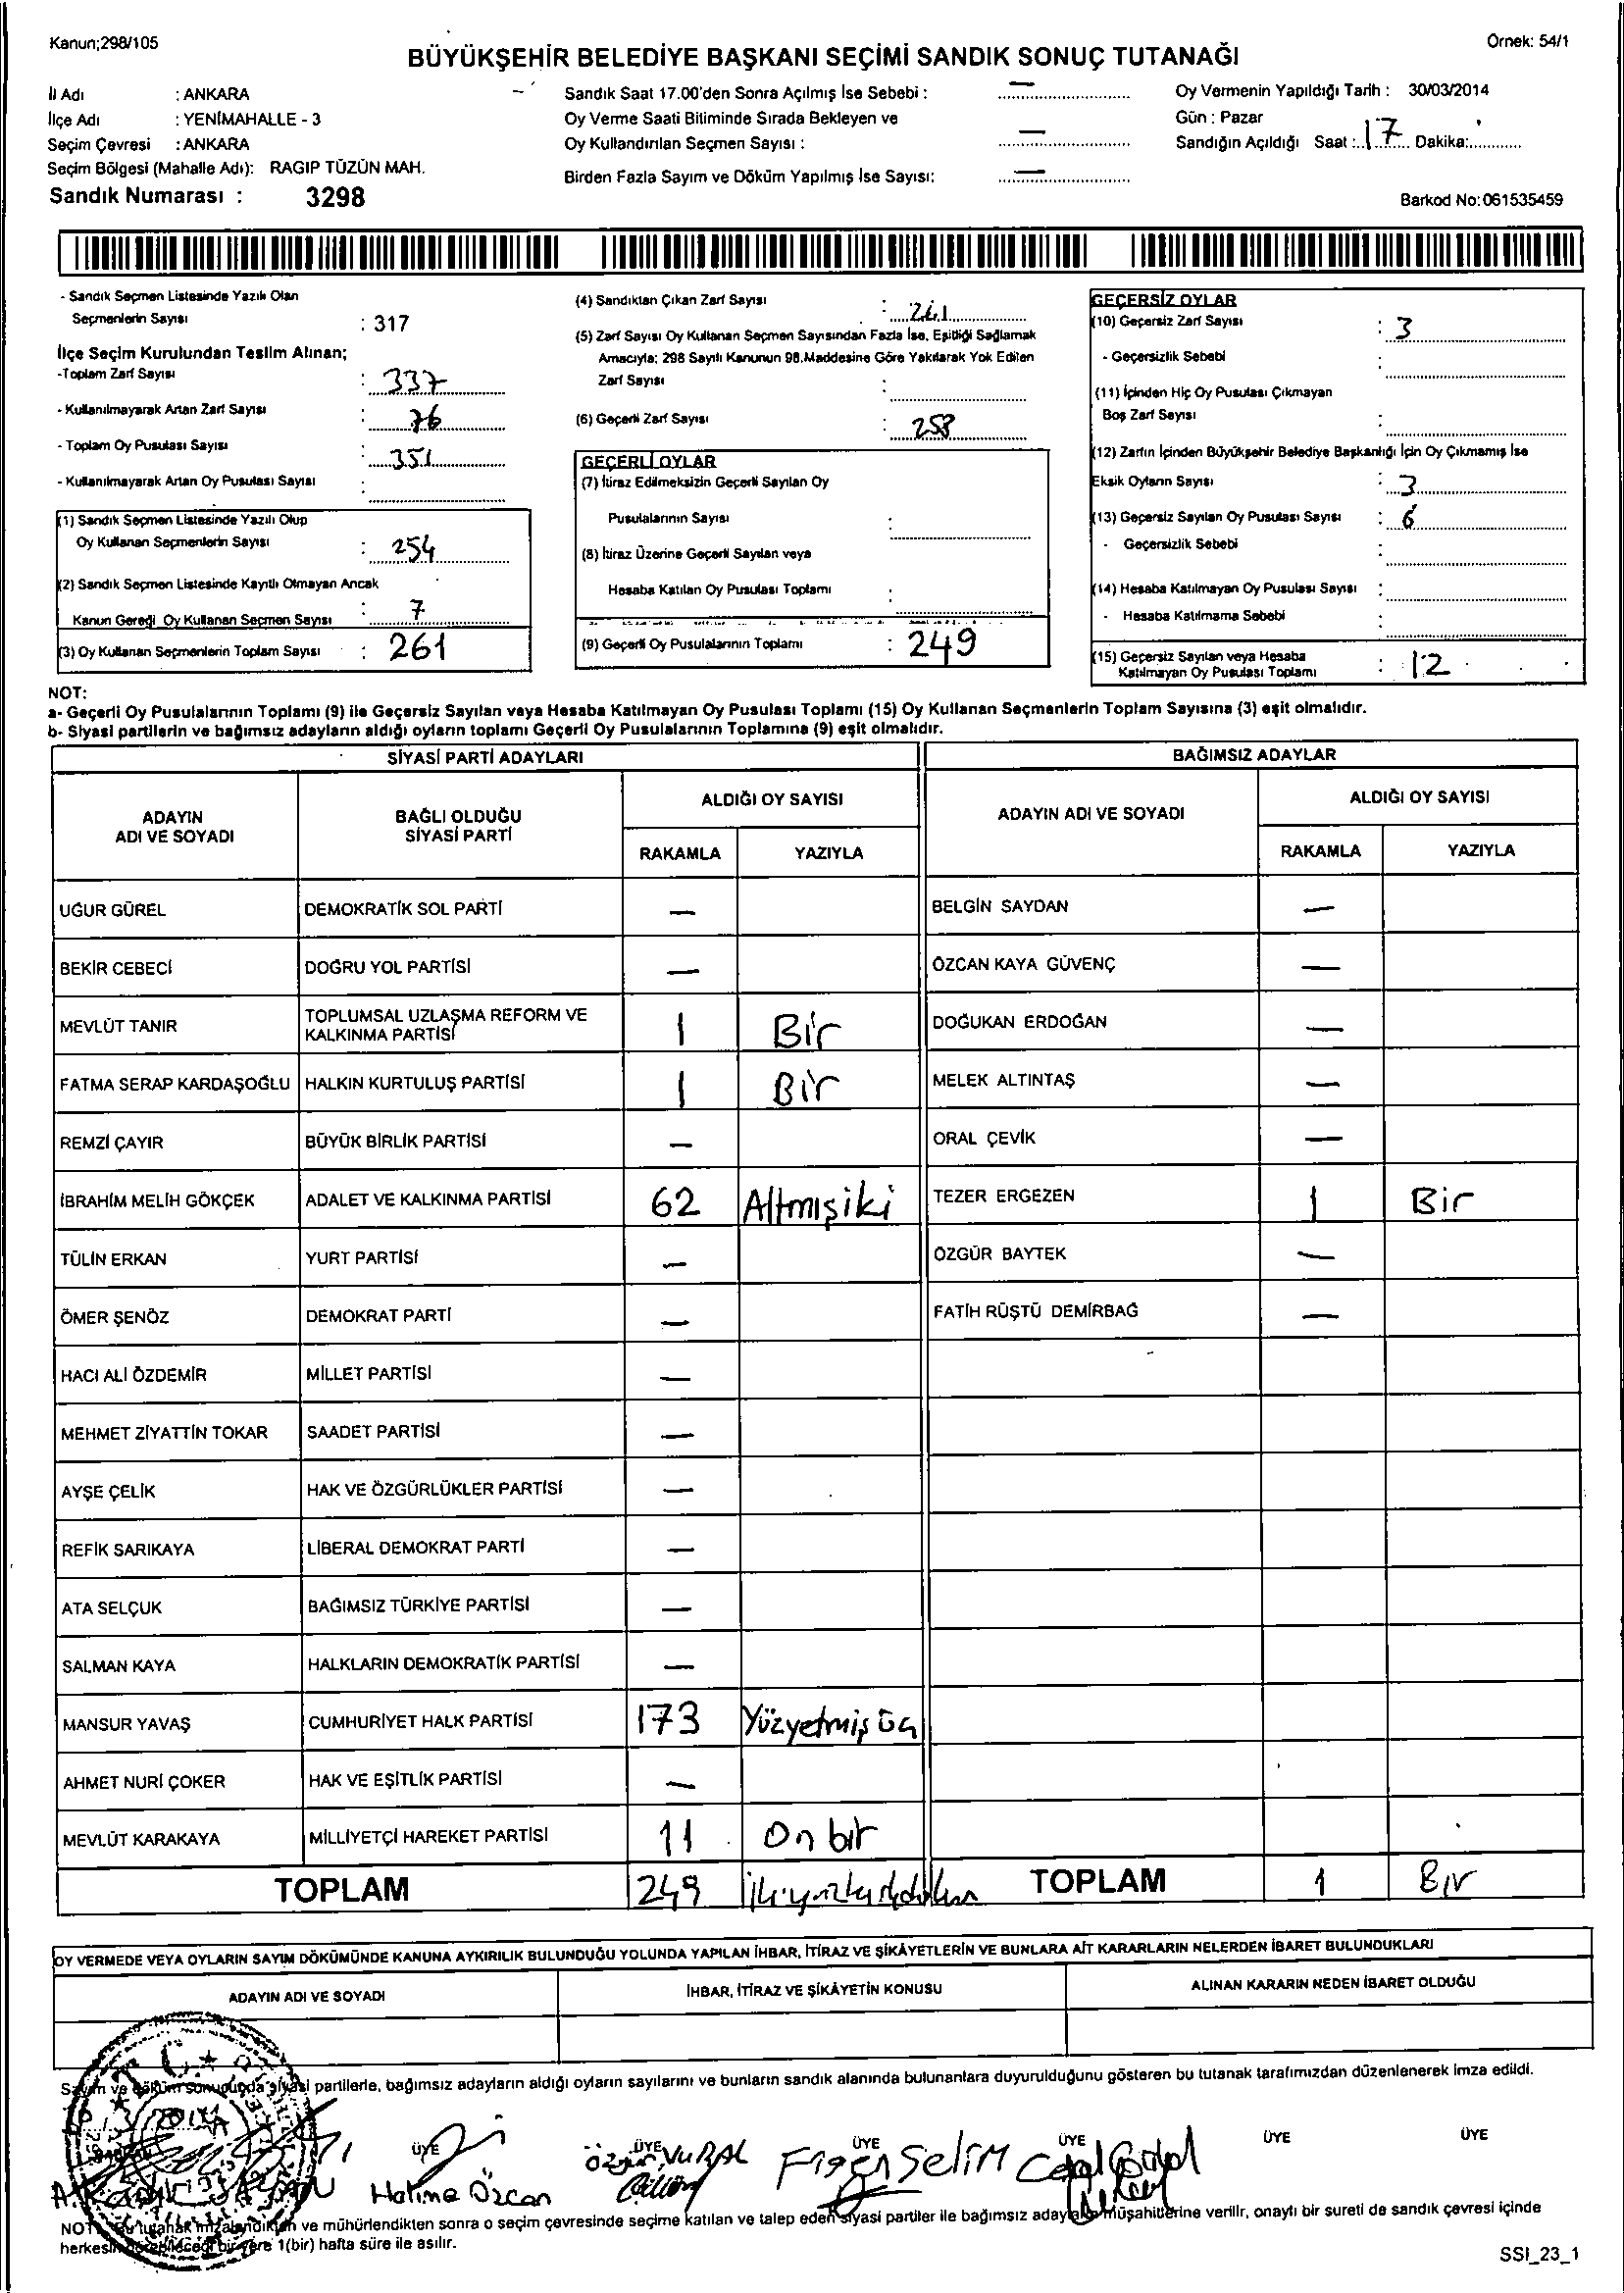 Kanun;298/105
Örnek: 54/1
BÜYÜKŞEHİR BELEDİYE BAŞKANI SEÇİMİ SANDIK SONUÇ TUTANAĞI
İl Adı : ANKARA
İlçe Adı : YENİMAHALLE - 3
Seçim Çevresi : ANKARA
Seçim Bölgesi (Mahalle Adı): RAGIP TÜZÜN MAH.
Sandık Numarası : 3298
Sandık Saat 17.00'den Sonra Açılmış İse Sebebi : —
Oy Verme Saati Bitiminde Sırada Bekleyen ve
Oy Kullandırılan Seçmen Sayısı : —
Birden Fazla Sayım ve Döküm Yapılmış İse Sayısı: —
Oy Vermenin Yapıldığı Tarih : 30/03/2014
Gün : Pazar
Sandığın Açıldığı Saat :..17.. Dakika:............
Barkod No:061535459
- Sandık Seçmen Listesinde Yazılı Olan
Seçmenlerin Sayısı : 317
İlçe Seçim Kurulundan Teslim Alınan;
-Toplam Zarf Sayısı : 337
- Kullanılmayarak Artan Zarf Sayısı : 76
- Toplam Oy Pusulası Sayısı : 351
- Kullanılmayarak Artan Oy Pusulası Sayısı :
(1) Sandık Seçmen Listesinde Yazılı Olup
Oy Kullanan Seçmenlerin Sayısı : 254
(2) Sandık Seçmen Listesinde Kayıtlı Olmayan Ancak
Kanun Gereği Oy Kullanan Seçmen Sayısı : 7
(3) Oy Kullanan Seçmenlerin Toplam Sayısı : 261
(4) Sandıktan Çıkan Zarf Sayısı : 261
(5) Zarf Sayısı Oy Kullanan Seçmen Sayısından Fazla İse, Eşitliği Sağlamak
Amacıyla; 298 Sayılı Kanunun 98.Maddesine Göre Yakılarak Yok Edilen
Zarf Sayısı :
(6) Geçerli Zarf Sayısı : 258
GEÇERLİ OYLAR
(7) İtiraz Edilmeksizin Geçerli Sayılan Oy
Pusulalarının Sayısı :
(8) İtiraz Üzerine Geçerli Sayılan veya
Hesaba Katılan Oy Pusulası Toplamı :
(9) Geçerli Oy Pusulalarının Toplamı : 249
GEÇERSİZ OYLAR
(10) Geçersiz Zarf Sayısı : 3
- Geçersizlik Sebebi :
(11) İçinden Hiç Oy Pusulası Çıkmayan
Boş Zarf Sayısı :
(12) Zarfın İçinden Büyükşehir Belediye Başkanlığı İçin Oy Çıkmamış İse
Eksik Oyların Sayısı : 3
(13) Geçersiz Sayılan Oy Pusulası Sayısı : 6
- Geçersizlik Sebebi :
(14) Hesaba Katılmayan Oy Pusulası Sayısı :
- Hesaba Katılmama Sebebi :
(15) Geçersiz Sayılan veya Hesaba
Katılmayan Oy Pusulası Toplamı : 12
NOT:
a- Geçerli Oy Pusulalarının Toplamı (9) ile Geçersiz Sayılan veya Hesaba Katılmayan Oy Pusulası Toplamı (15) Oy Kullanan Seçmenlerin Toplam Sayısına (3) eşit olmalıdır.
b- Siyasi partilerin ve bağımsız adayların aldığı oyların toplamı Geçerli Oy Pusulalarının Toplamına (9) eşit olmalıdır.
SİYASİ PARTİ ADAYLARI
ADAYIN ADI VE SOYADI
BAĞLI OLDUĞU SİYASİ PARTİ
ALDIĞI OY SAYISI
RAKAMLA YAZIYLA
UĞUR GÜREL DEMOKRATİK SOL PARTİ —
BEKİR CEBECİ DOĞRU YOL PARTİSİ —
MEVLÜT TANIR TOPLUMSAL UZLAŞMA REFORM VE KALKINMA PARTİSİ 1 Bir
FATMA SERAP KARDAŞOĞLU HALKIN KURTULUŞ PARTİSİ 1 Bir
REMZİ ÇAYIR BÜYÜK BİRLİK PARTİSİ —
İBRAHİM MELİH GÖKÇEK ADALET VE KALKINMA PARTİSİ 62 Altmışiki
TÜLİN ERKAN YURT PARTİSİ —
ÖMER ŞENÖZ DEMOKRAT PARTİ —
HACI ALİ ÖZDEMİR MİLLET PARTİSİ —
MEHMET ZİYATTİN TOKAR SAADET PARTİSİ —
AYŞE ÇELİK HAK VE ÖZGÜRLÜKLER PARTİSİ —
REFİK SARIKAYA LİBERAL DEMOKRAT PARTİ —
ATA SELÇUK BAĞIMSIZ TÜRKİYE PARTİSİ —
SALMAN KAYA HALKLARIN DEMOKRATİK PARTİSİ —
MANSUR YAVAŞ CUMHURİYET HALK PARTİSİ 173 Yüzyetmiş üç
AHMET NURİ ÇOKER HAK VE EŞİTLİK PARTİSİ —
MEVLÜT KARAKAYA MİLLİYETÇİ HAREKET PARTİSİ 11 On bir
TOPLAM 249
BAĞIMSIZ ADAYLAR
ADAYIN ADI VE SOYADI
ALDIĞI OY SAYISI
RAKAMLA YAZIYLA
BELGİN SAYDAN —
ÖZCAN KAYA GÜVENÇ —
DOĞUKAN ERDOĞAN —
MELEK ALTINTAŞ —
ORAL ÇEVİK —
TEZER ERGEZEN 1 Bir
ÖZGÜR BAYTEK —
FATİH RÜŞTÜ DEMİRBAĞ —
TOPLAM 1 Bir
OY VERMEDE VEYA OYLARIN SAYIM DÖKÜMÜNDE KANUNA AYKIRILIK BULUNDUĞU YOLUNDA YAPILAN İHBAR, İTİRAZ VE ŞİKÂYETLERİN VE BUNLARA AİT KARARLARIN NELERDEN İBARET BULUNDUKLARI
ADAYIN ADI VE SOYADI
İHBAR, İTİRAZ VE ŞİKÂYETİN KONUSU
ALINAN KARARIN NEDEN İBARET OLDUĞU
Sayım ve döküm sonucunda siyasi partilerle, bağımsız adayların aldığı oyların sayılarını ve bunların sandık alanında bulunanlara duyurulduğunu gösteren bu tutanak tarafımızdan düzenlenerek imza edildi.
ÜYE ÜYE ÜYE ÜYE ÜYE ÜYE
Halime Özcan
Özgür VURAL
Figen Selim
NOT: Bu tutanak imzalandıktan ve mühürlendikten sonra o seçim çevresinde seçime katılan ve talep eden siyasi partiler ile bağımsız adayların müşahitlerine verilir, onaylı bir sureti de sandık çevresi içinde
herkesin görebileceği bir yere 1(bir) hafta süre ile asılır.
SSI_23_1